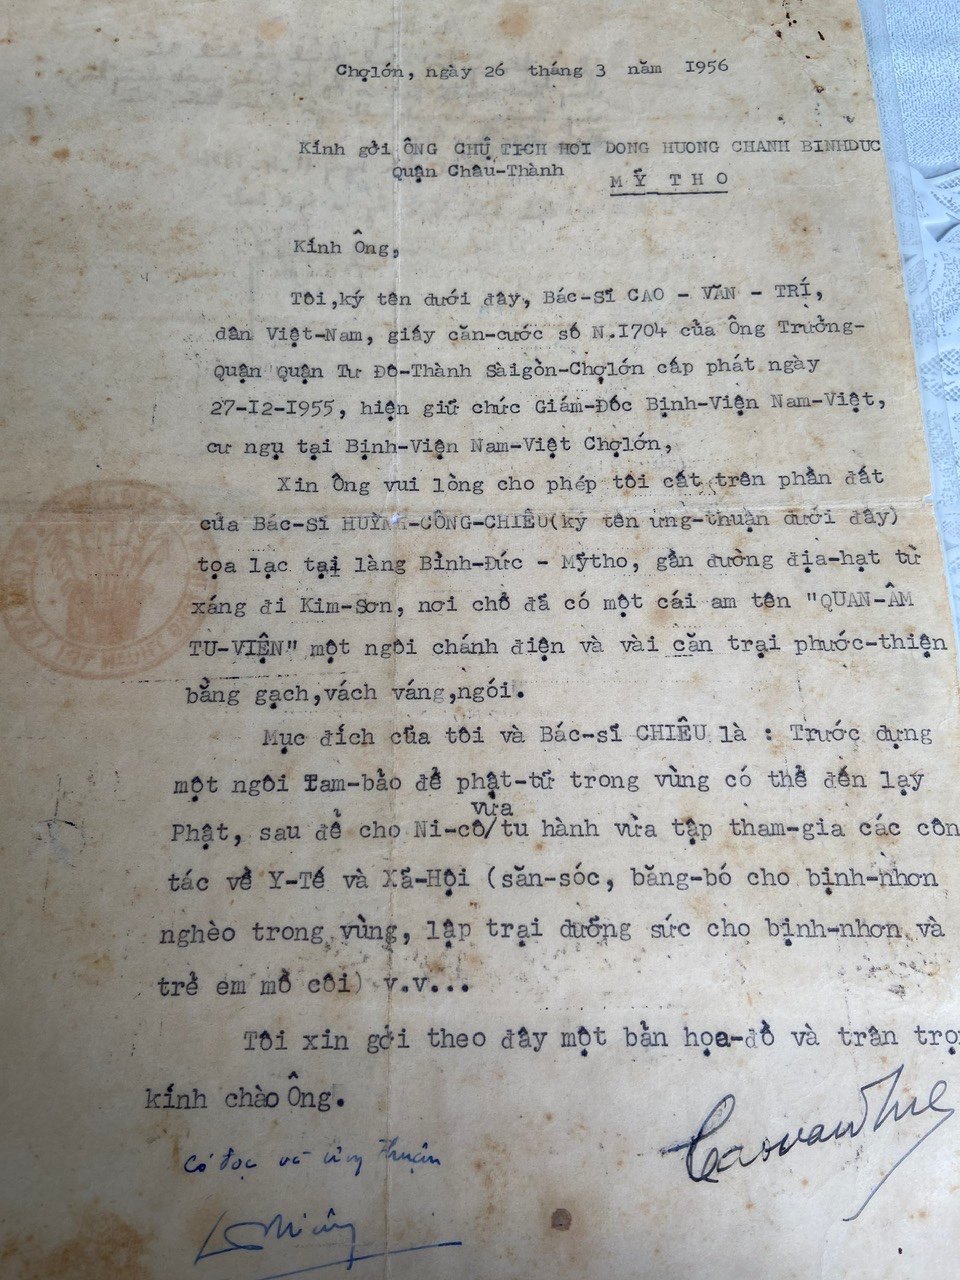 Chợlớn, ngày 26 tháng 3 năm 1956
Kính gởi ÔNG CHỦ TICH HOI DONG HUONG CHANH BINHDUC
Quận Châu-Thành
MỸ THO
Kính Ông,
Tôi,ký tên dưới đây, Bác-Sĩ CAO - VĂN - TRÍ,
dân Việt-Nam, giấy căn-cước số N.1704 của Ông Trưởng-
Quận Quận Tư Đô-Thành Sàigòn-Chợlớn cấp phát ngày
27-12-1955, hiện giữ chức Giám-Đốc Bịnh-Viện Nam-Việt,
cư ngụ tại Bịnh-Viện Nam-Việt Chợlớn,
Xin Ông vui lòng cho phép tôi cất trên phần đất
của Bác-Sĩ HUỲNH-CÔNG-CHIÊU(ký tên ưng-thuận dưới đây)
tọa lạc tại làng Bình-Đức - Mỹtho, gần đường địa-hạt từ
xáng đi Kim-Sơn, nơi chỗ đã có một cái am tên "QUAN-ÂM
TU-VIỆN" một ngôi chánh điện và vài căn trại phước-thiện
bằng gạch,vách ván,ngói.
Mục đích của tôi và Bác-sĩ CHIÊU là : Trước dựng
một ngôi Tam-bảo để phật-tử trong vùng có thể đến lạy
vừa
Phật, sau để cho Ni-cô/tu hành vừa tập tham-gia các côn
tác về Y-Tế và Xã-Hội (săn-sóc, băng-bó cho bịnh-nhơn
nghèo trong vùng, lập trại dưỡng sức cho bịnh-nhơn và
trẻ em mồ côi) v.v...
Tôi xin gởi theo đây một bản họa-đồ và trân trọn
kính chào Ông.
Có đọc và ưng thuận